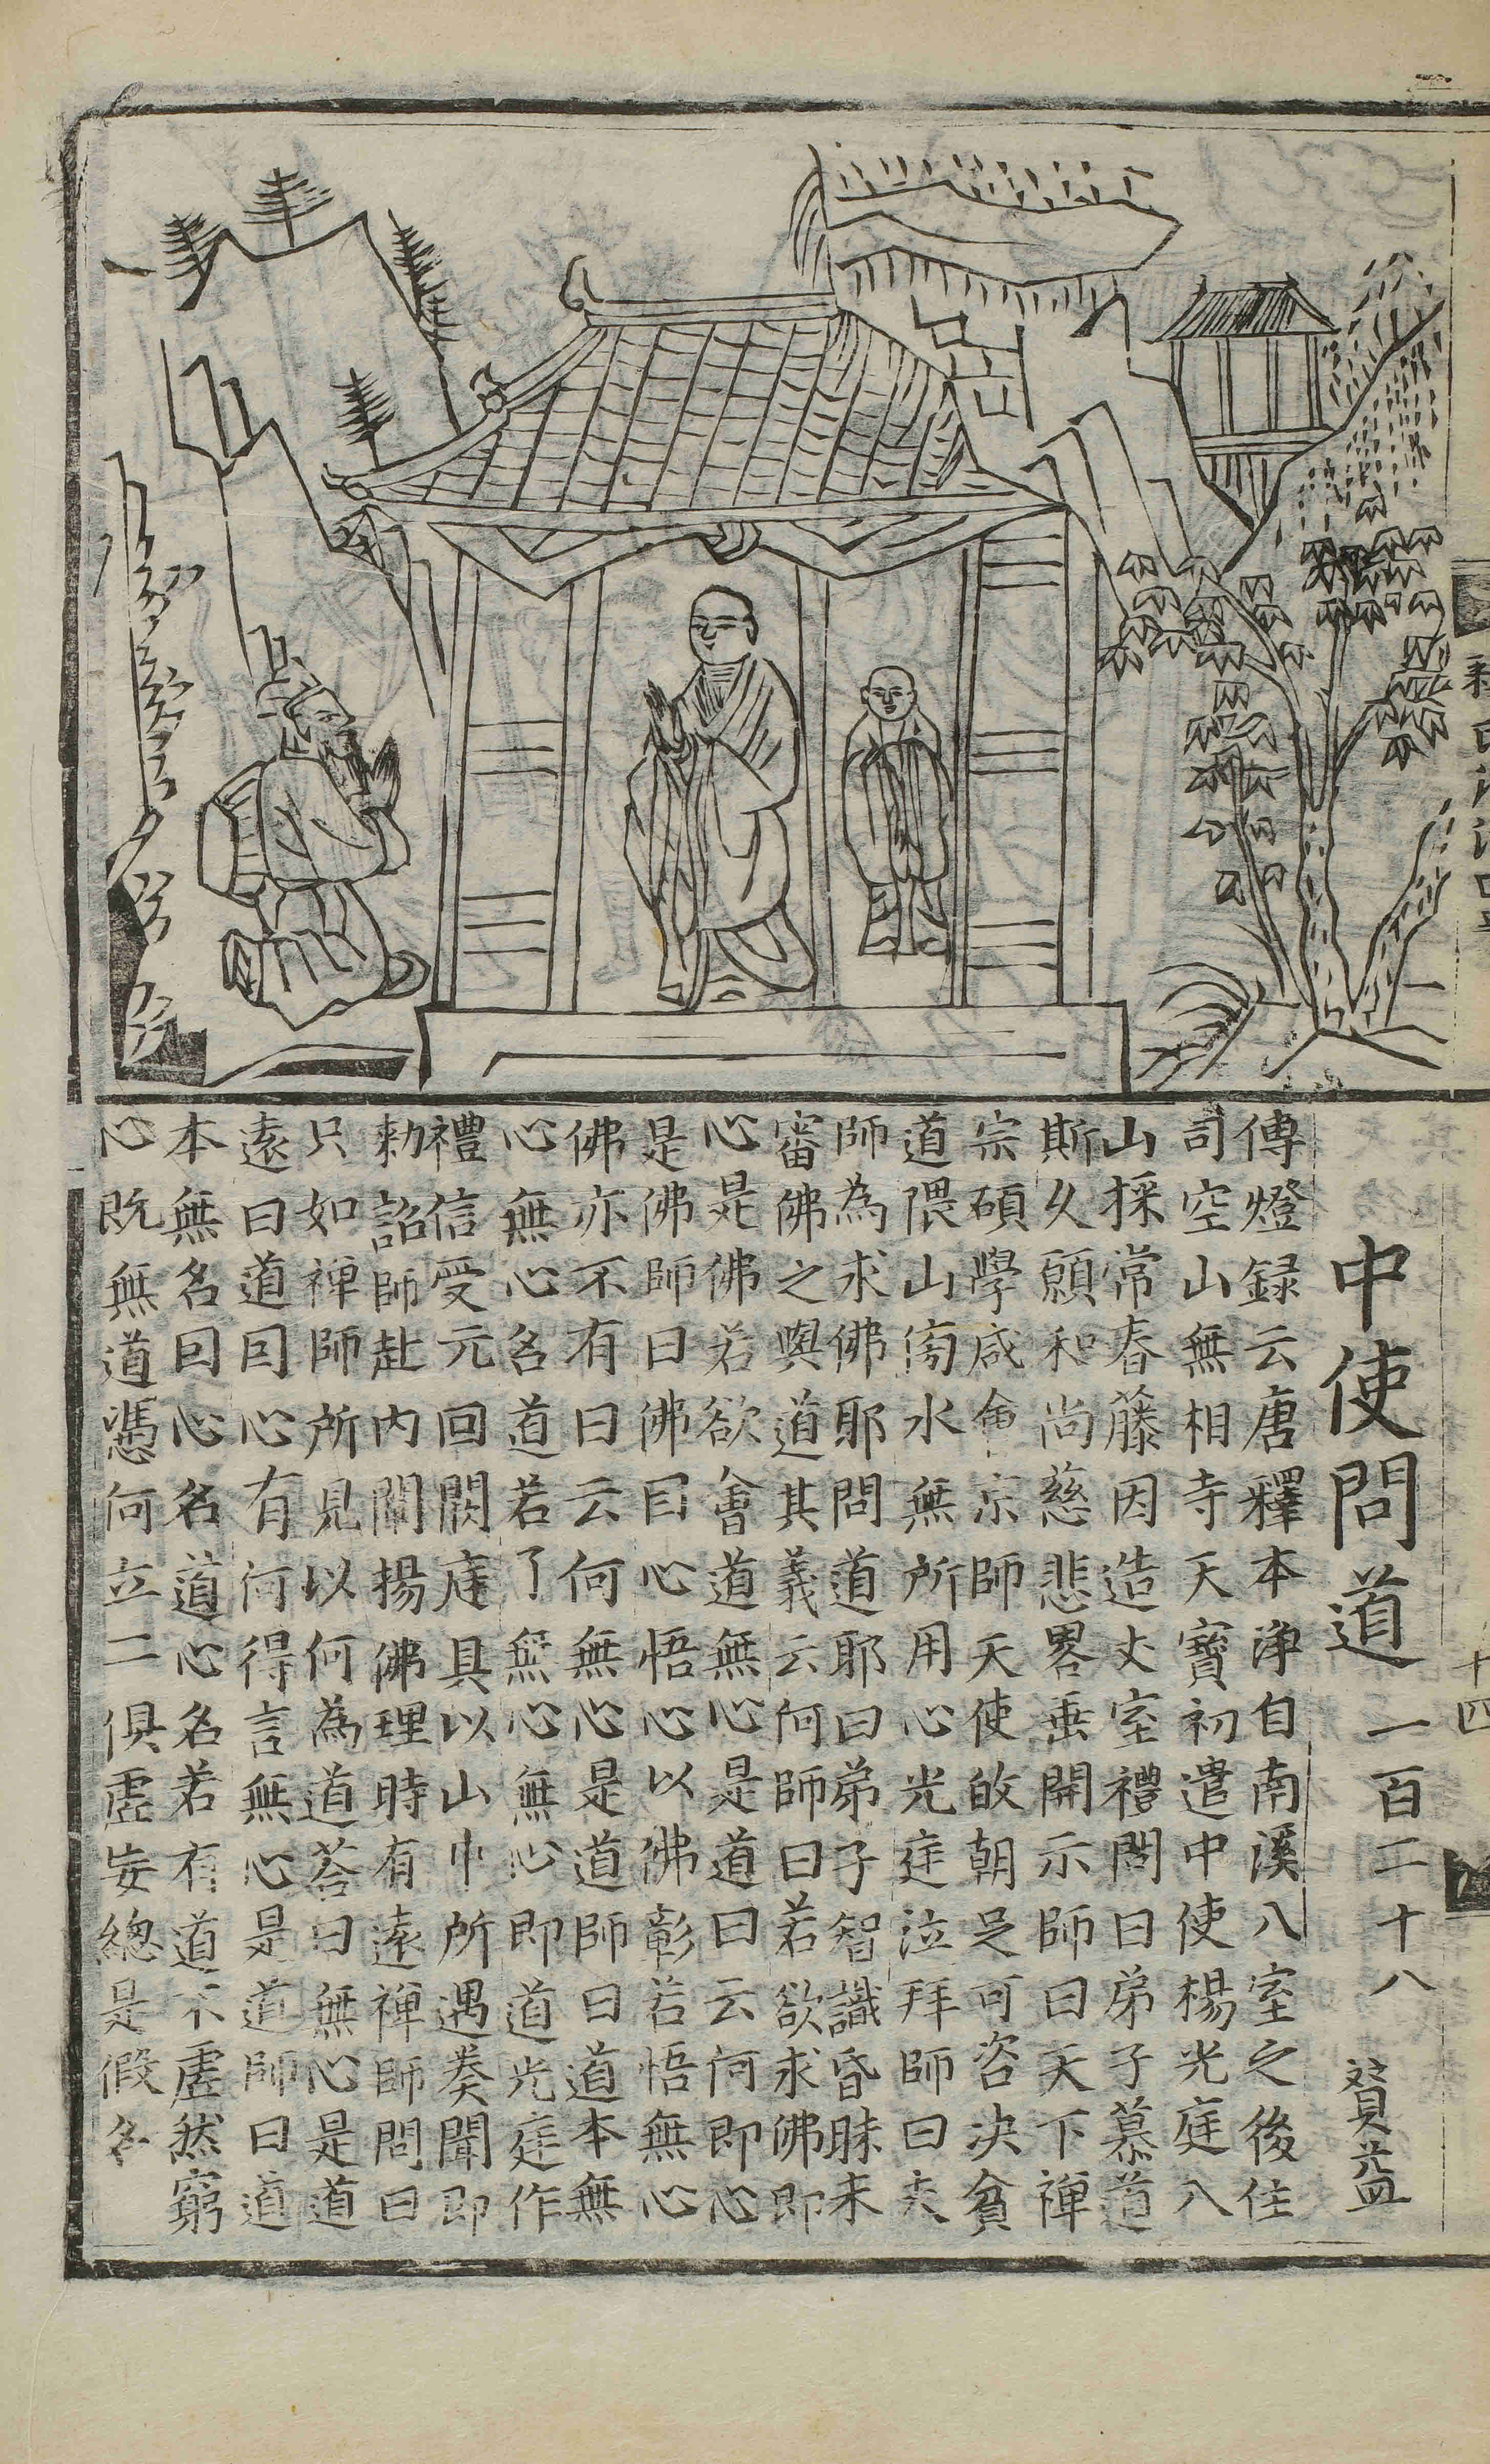 中使問道 一百二十八 賛益
傳燈録云唐釋本淨自南溪八室之後住
司空山無相寺天寶初遣中使楊光庭八
山採常春藤因造丈室禮問曰弟子慕道
斯久願和尚慈悲畧垂開示師曰天下禪
宗碩學咸會京師天使㰱朝足可咨决貧
道隈山傍水無所用心光庭泣拜師曰夫
師為求佛耶問道耶曰弟子智識昏昧未
審佛之與道其義云何師曰若欲求佛即
心是佛若欲會道無心是道曰云何即心
是佛師曰佛目心悟心以佛彰若悟無心
佛亦不有曰云何無心是道師曰道本無
心無心名道若了無心無心即道光庭作
禮信受元回闕庭具以山中所遇奏聞即
勑詔師赴内闡揚佛理時有逺禪師問曰
只如禪師所見以何為道荅曰無心是道
逺曰道囙心有何得言無心是道師曰道
本無名囙心名道心名若有道不虛然窮
心既無道憑何立二俱虛妄總是假名
十四